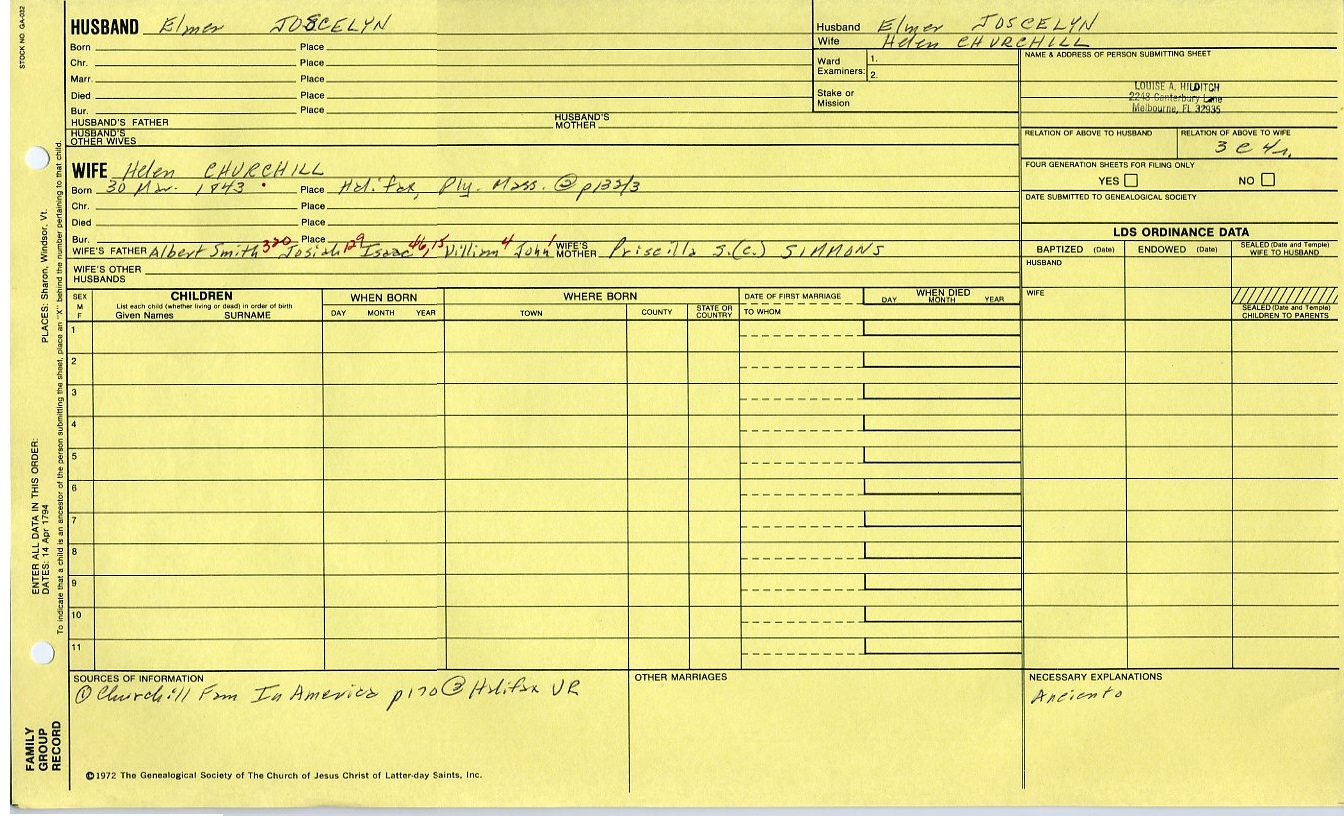 STOCK NO. GA-032
HUSBAND Elmer JOSCELYN
Born Place
Chr. Place
Marr. Place
Died Place
Bur. Place
HUSBAND'S FATHER HUSBAND'S MOTHER
HUSBAND'S OTHER WIVES
Husband Elmer JOSCELYN
Wife Helen CHURCHILL
Ward Examiners: 1.
2.
Stake or Mission
NAME & ADDRESS OF PERSON SUBMITTING SHEET
LOUISE A. HILDITCH
2248 Canterbury Lane
Melbourne, FL 32935
RELATION OF ABOVE TO HUSBAND RELATION OF ABOVE TO WIFE
3 C 4r.
FOUR GENERATION SHEETS FOR FILING ONLY
YES NO
DATE SUBMITTED TO GENEALOGICAL SOCIETY
WIFE Helen CHURCHILL
Born 30 Mar. 1843 Place Halifax, Ply. Mass. ② p132/3
Chr. Place
Died Place
Bur. Place
WIFE'S FATHER Albert Smith 320 Josiah 129 Isaac 46,15 William 4 John 1 WIFE'S MOTHER Priscilla S.(C.) SIMMONS
WIFE'S OTHER HUSBANDS
LDS ORDINANCE DATA
BAPTIZED (Date) ENDOWED (Date) SEALED (Date and Temple) WIFE TO HUSBAND
HUSBAND
WIFE
SEALED (Date and Temple) CHILDREN TO PARENTS
SEX M F
CHILDREN
List each child (whether living or dead) in order of birth
Given Names SURNAME
WHEN BORN
DAY MONTH YEAR
WHERE BORN
TOWN COUNTY STATE OR COUNTRY
DATE OF FIRST MARRIAGE
TO WHOM
WHEN DIED
DAY MONTH YEAR
1
2
3
4
5
6
7
8
9
10
11
SOURCES OF INFORMATION
① Churchill Fam In America p170 ② Halifax VR
OTHER MARRIAGES
NECESSARY EXPLANATIONS
©1972 The Genealogical Society of The Church of Jesus Christ of Latter-day Saints, Inc.
FAMILY GROUP RECORD
ENTER ALL DATA IN THIS ORDER:
DATES: 14 Apr 1794
PLACES: Sharon, Windsor, Vt.
To indicate that a child is an ancestor of the person submitting the sheet, place an "X" behind the number pertaining to that child.